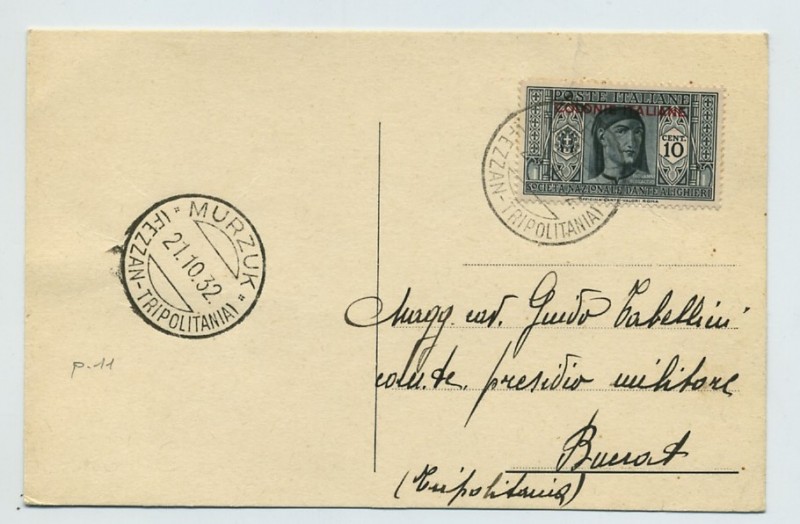 POSTE ITALIANE
COLONIE ITALIANE
CENT.
10
SOCIETÀ NAZIONALE DANTE ALIGHIERI
(FEZZAN-TRIPOLITANIA)
MURZUK
21.10.32.
(FEZZAN-TRIPOLITANIA)
Magg. cav. Guido Tabellini
com.te. presidio militare
Buerat
(Tripolitania)
p.11